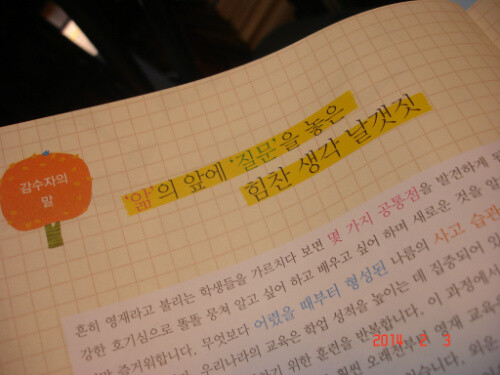 감수자의
말
'앎'의 앞에 '질문'을 놓은
힘찬 생각 날갯짓
흔히 영재라고 불리는 학생들을 가르치다 보면 몇 가지 공통점을 발견하게
강한 호기심으로 똘똘 뭉쳐 알고 싶어 하고 배우고 싶어 하며 새로운 것을
즐거워합니다. 무엇보다 어렸을 때부터 형성된 나름의 사고 습관
우리나라의 교육은 학업 성적을 높이는 데 집중되어
위한 훈련을 반복합니다. 이 과정에서
오래전부터 영재 교육
있습니다.
2014
3